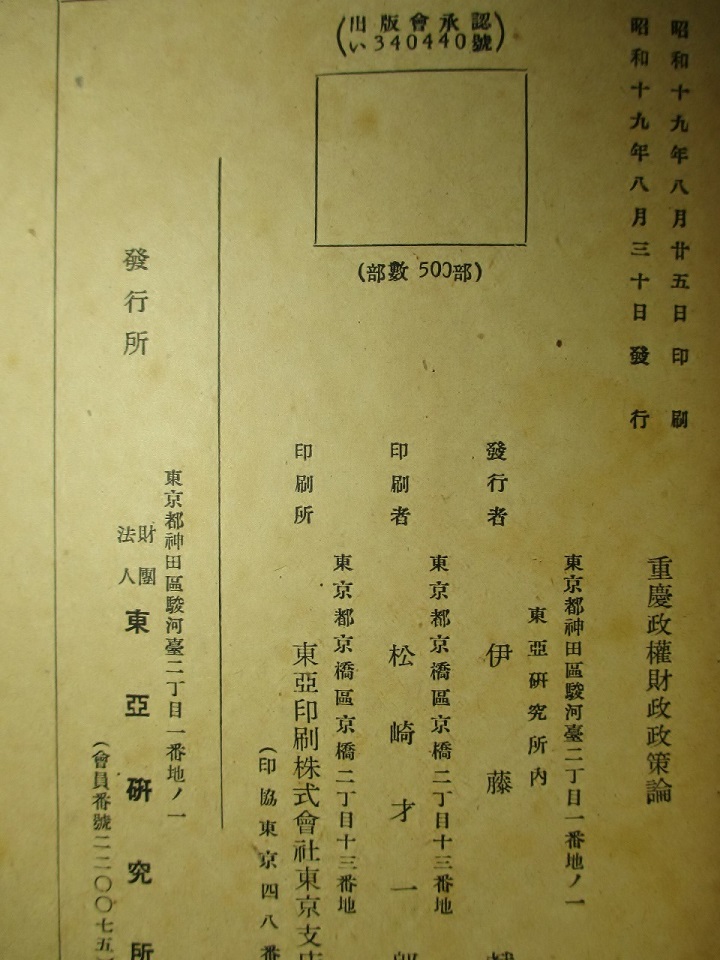 昭和十九年八月廿五日印刷
昭和十九年八月三十日發行
(出版會承認
い340440號)
(部數 500部)
重慶政權財政政策論
東京都神田區駿河臺二丁目一番地ノ一
東亞硏究所內
發行者 伊藤
東京都京橋區京橋二丁目十三番地
印刷者 松崎才一郎
東京都京橋區京橋二丁目十三番地
印刷所 東亞印刷株式會社東京支店
(印協東京四八番
東京都神田區駿河臺二丁目一番地ノ一
發行所 財團法人 東亞硏究所
(會員番號二二〇〇七五